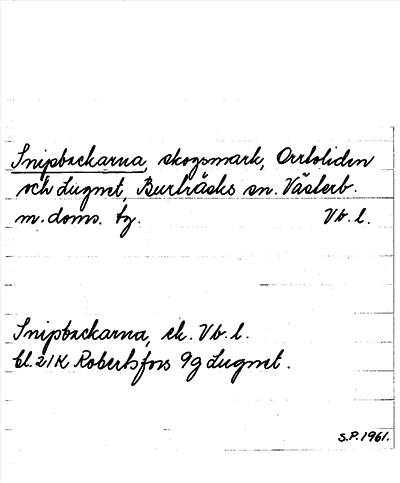 Snipbackarna, skogsmark, Orrboliden
och Lugnet, Burträsks sn. Västerb.
m. doms. tg. Vb. l.
Snipbackarna, ek. Vb. l.
bl. 21K Robertsfors 9g Lugnet.
S.P. 1961.